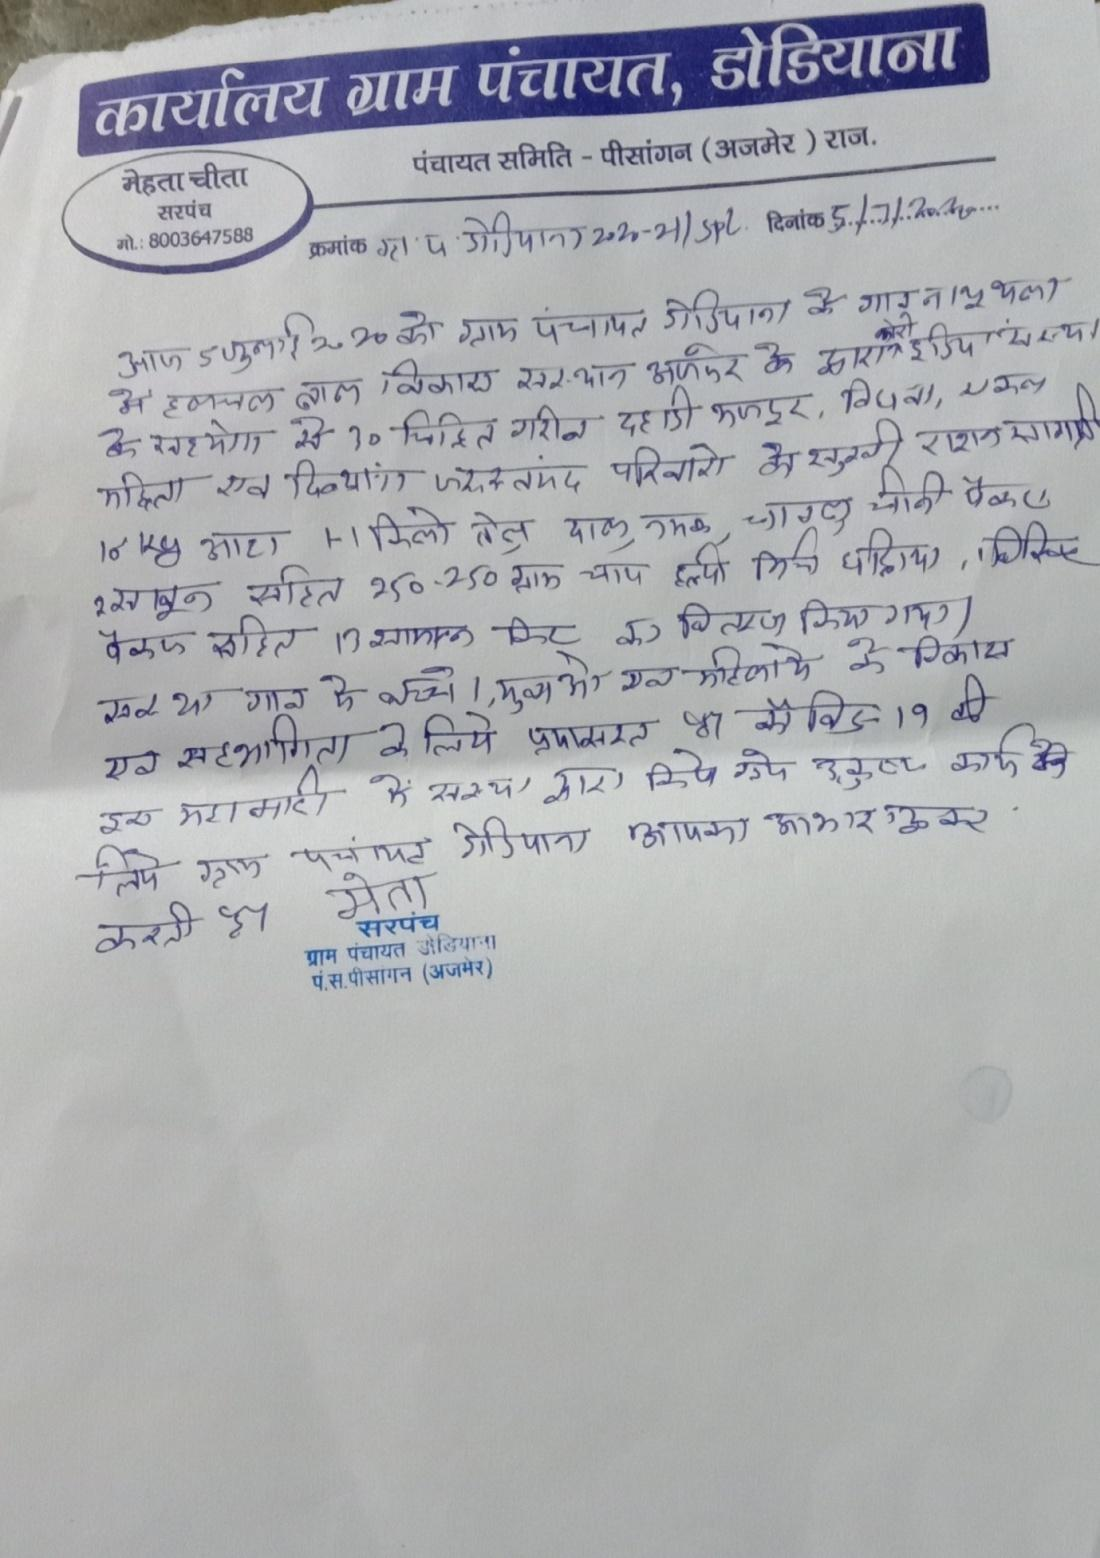 कार्यालय ग्राम पंचायत, डोडियाना
पंचायत समिति - पीसांगन (अजमेर ) राज.
मेहता चीता
सरपंच
मो.: 8003647588
क्रमांक ग्रा. प. डोडियाना 2020-21/Spl. दिनांक 5/7/2020
आज 5 जुलाई 2020 को ग्राम पंचायत डोडियाना के गाव नाथूथला
मे हलचल बाल विकास संस्थान अजमेर के द्वारा इंडिया संस्था
के सहयोग से 30 चिन्हित गरीब दहाडी मजदूर, विधवा, एकल
महिला एव दिव्यांग जरूरतमंद परिवारो को सुखी राशन सामग्री
10 kg आटा 1-1 किलो तेल दाल, नमक, चावल, चीनी पैकेट
2 साबून सहित 250-250 ग्राम चाय हल्दी मिर्च धनिया, बिस्किट
पैकेट सहित 13 सामान किट का वितरण किया गया।
संस्था गाव के बच्चो, युवाओ एव महिलाओ के विकास
एव सहभागिता के लिये प्रयासरत है। कोविड-19 की
इस महामारी मे संस्था द्वारा किये गये उत्कृष्ट कार्य के
लिये ग्राम पंचायत डोडियाना आपका आभार व्यक्त
करती है।
मेता
सरपंच
ग्राम पंचायत डोडियाना
पं.स.पीसागन (अजमेर)